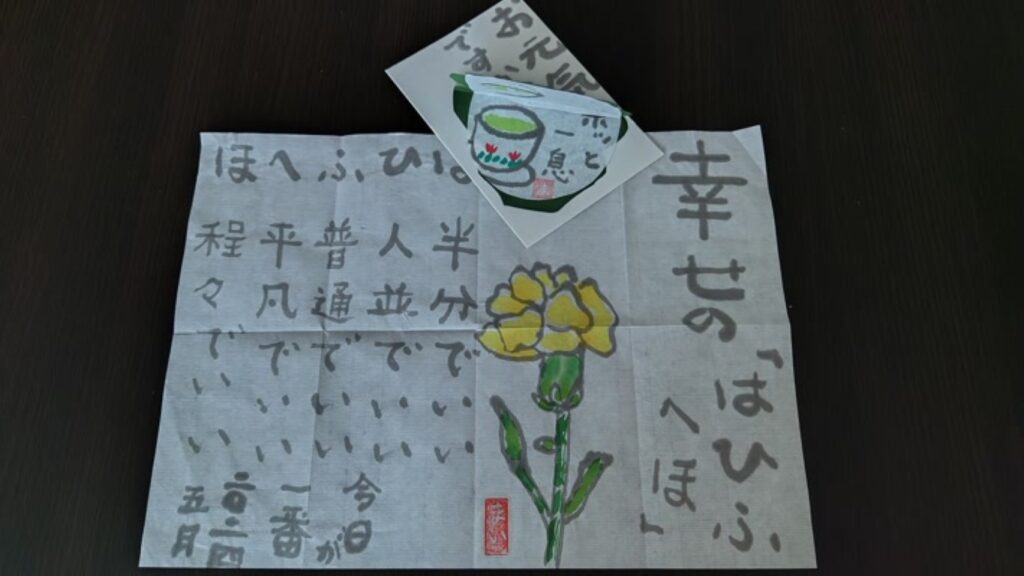 お元気
ですか
ホッと
一息
幸せの
「はひふ
へほ」
は 半分でいい
ひ 人並でいい
ふ 普通でいい
へ 平凡でいい
ほ 程々でいい
今日が
一番
二〇二四
五月